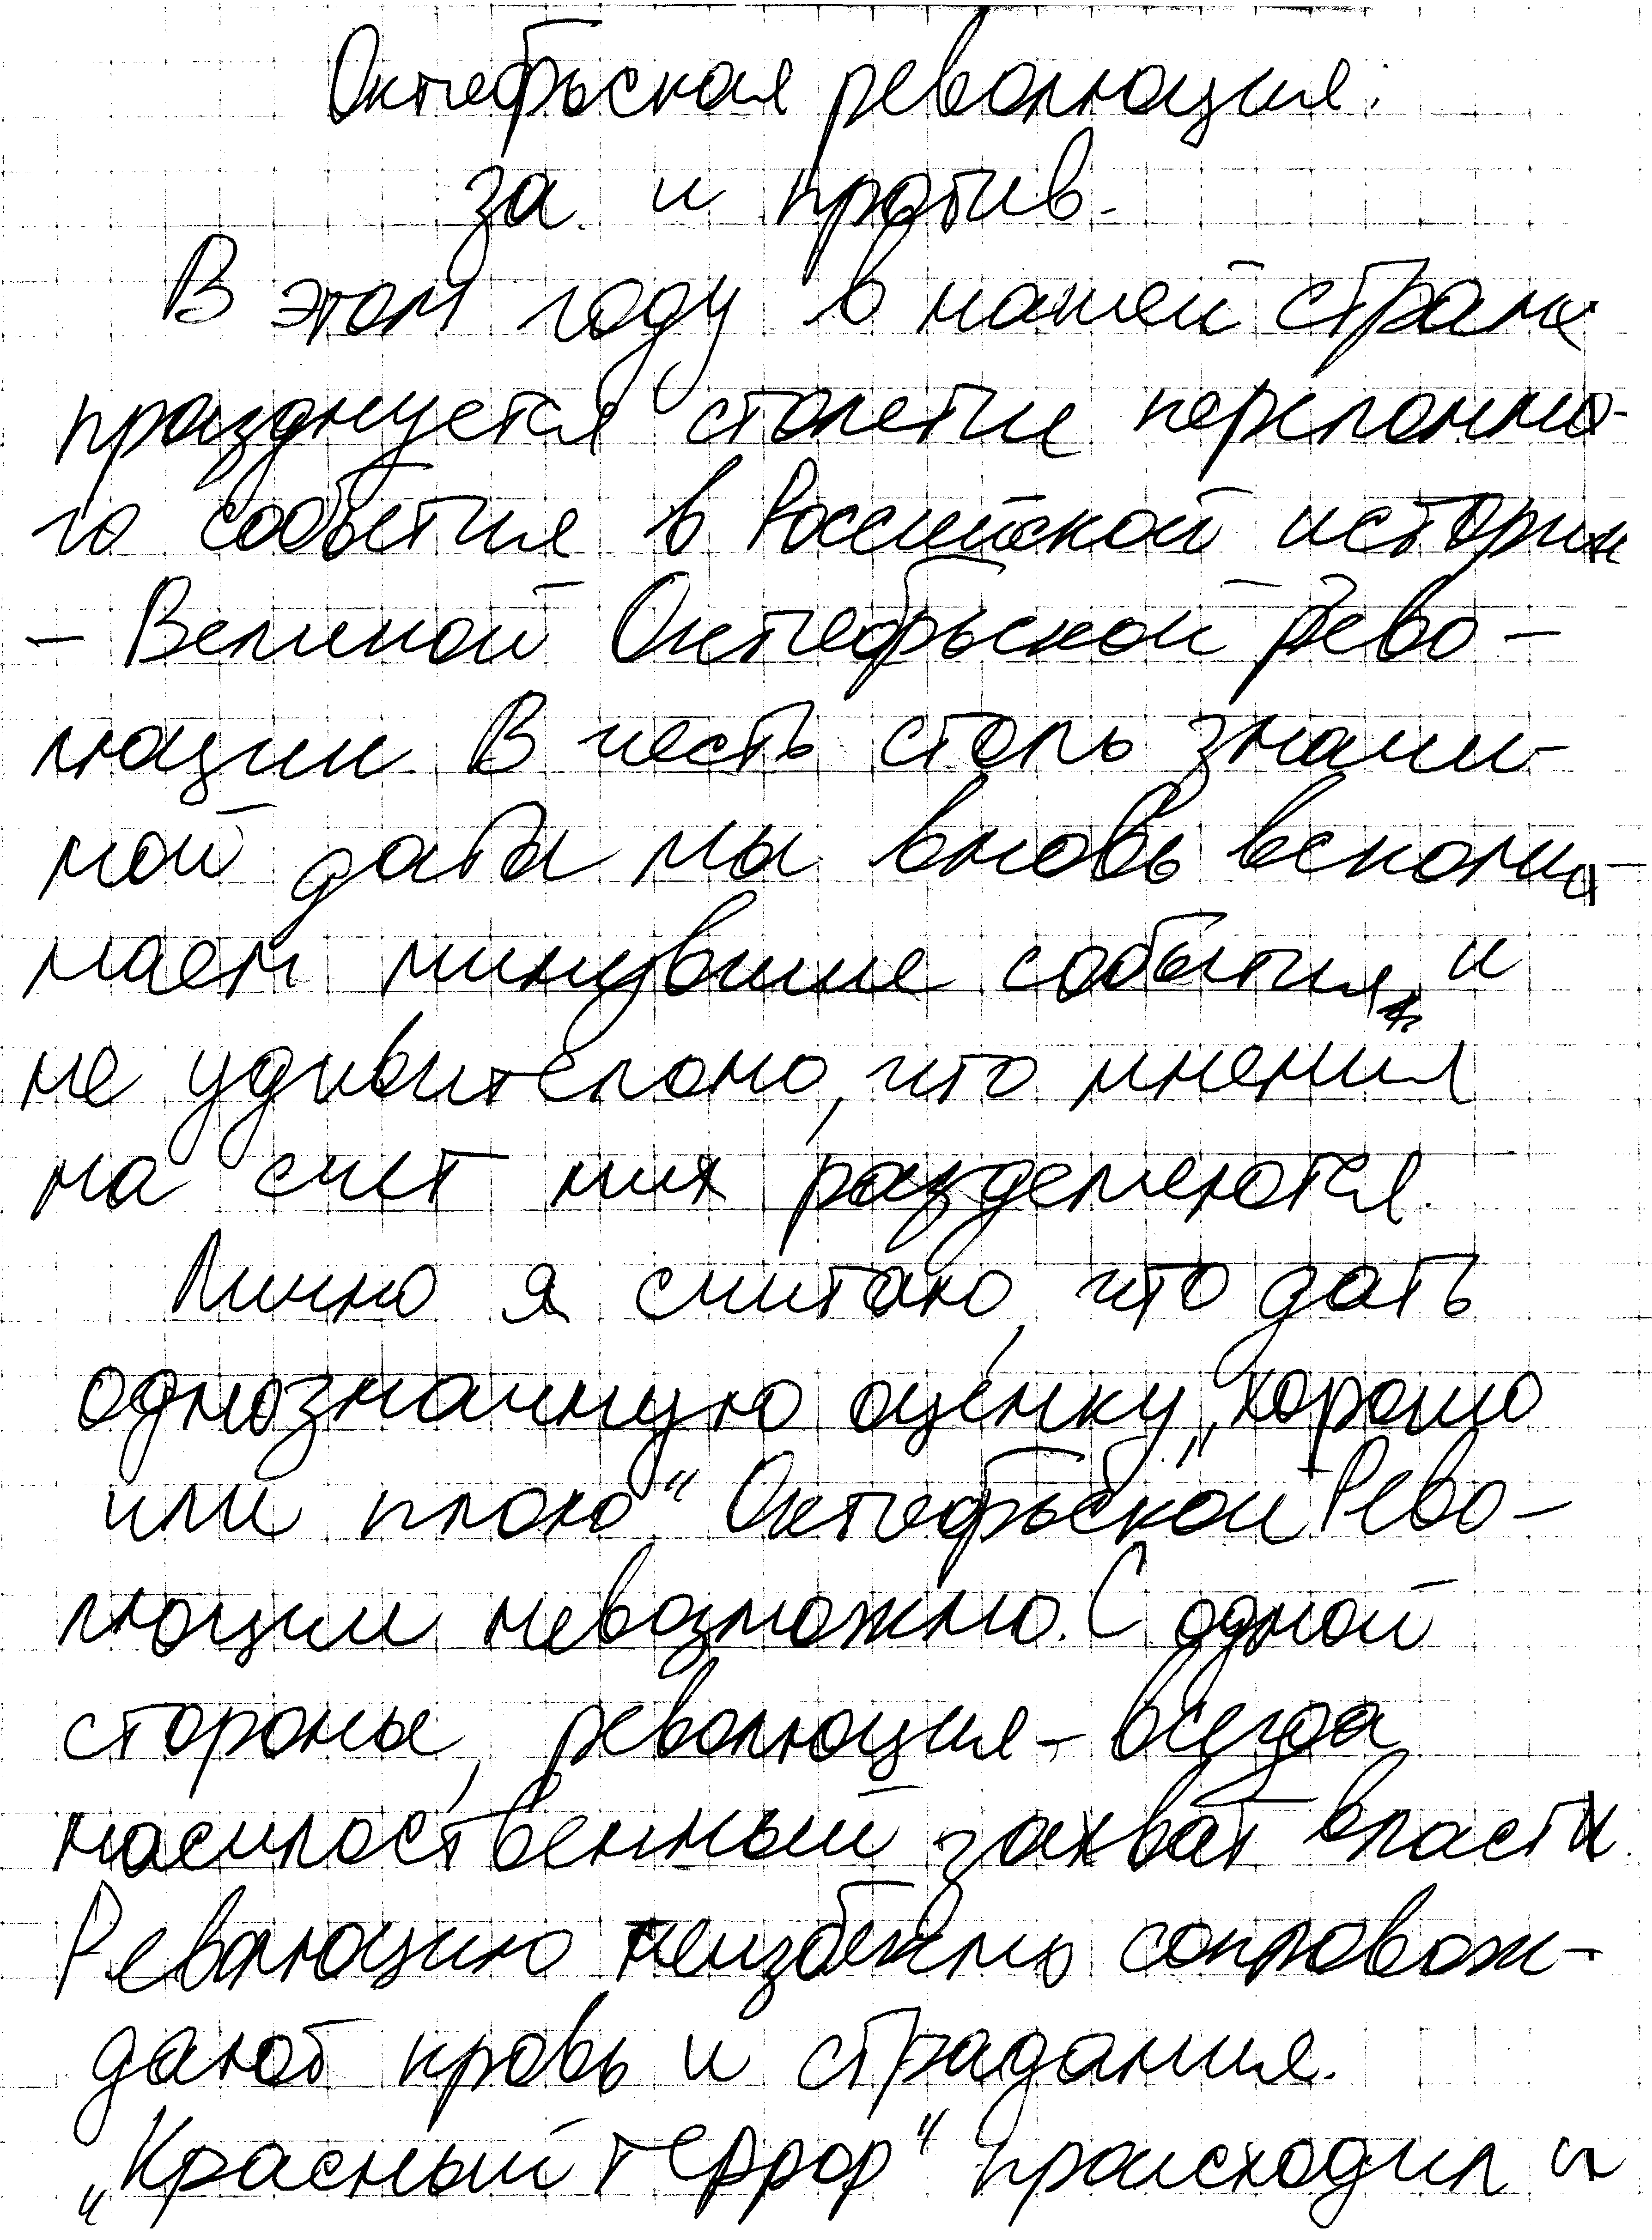 Октябрьская революция:
за и против.
В этом году в нашей стране
празднуется столетие переломно-
го события в Российской истории
- Великой Октябрьской Рево-
люции. В честь столь значи-
мой даты мы вновь вспоми-
наем минувшие события, и
не удивительно, что мнения
на счет них разделяются.
Лично я считаю, что дать
однозначную оценку „хорошо
или плохо“ Октябрьской Рево-
люции невозможно. С одной
стороны, революция - всегда
насильственный захват власти.
Революцию неизбежно сопровож-
дают кровь и страдания.
„Красный террор“ происходил и